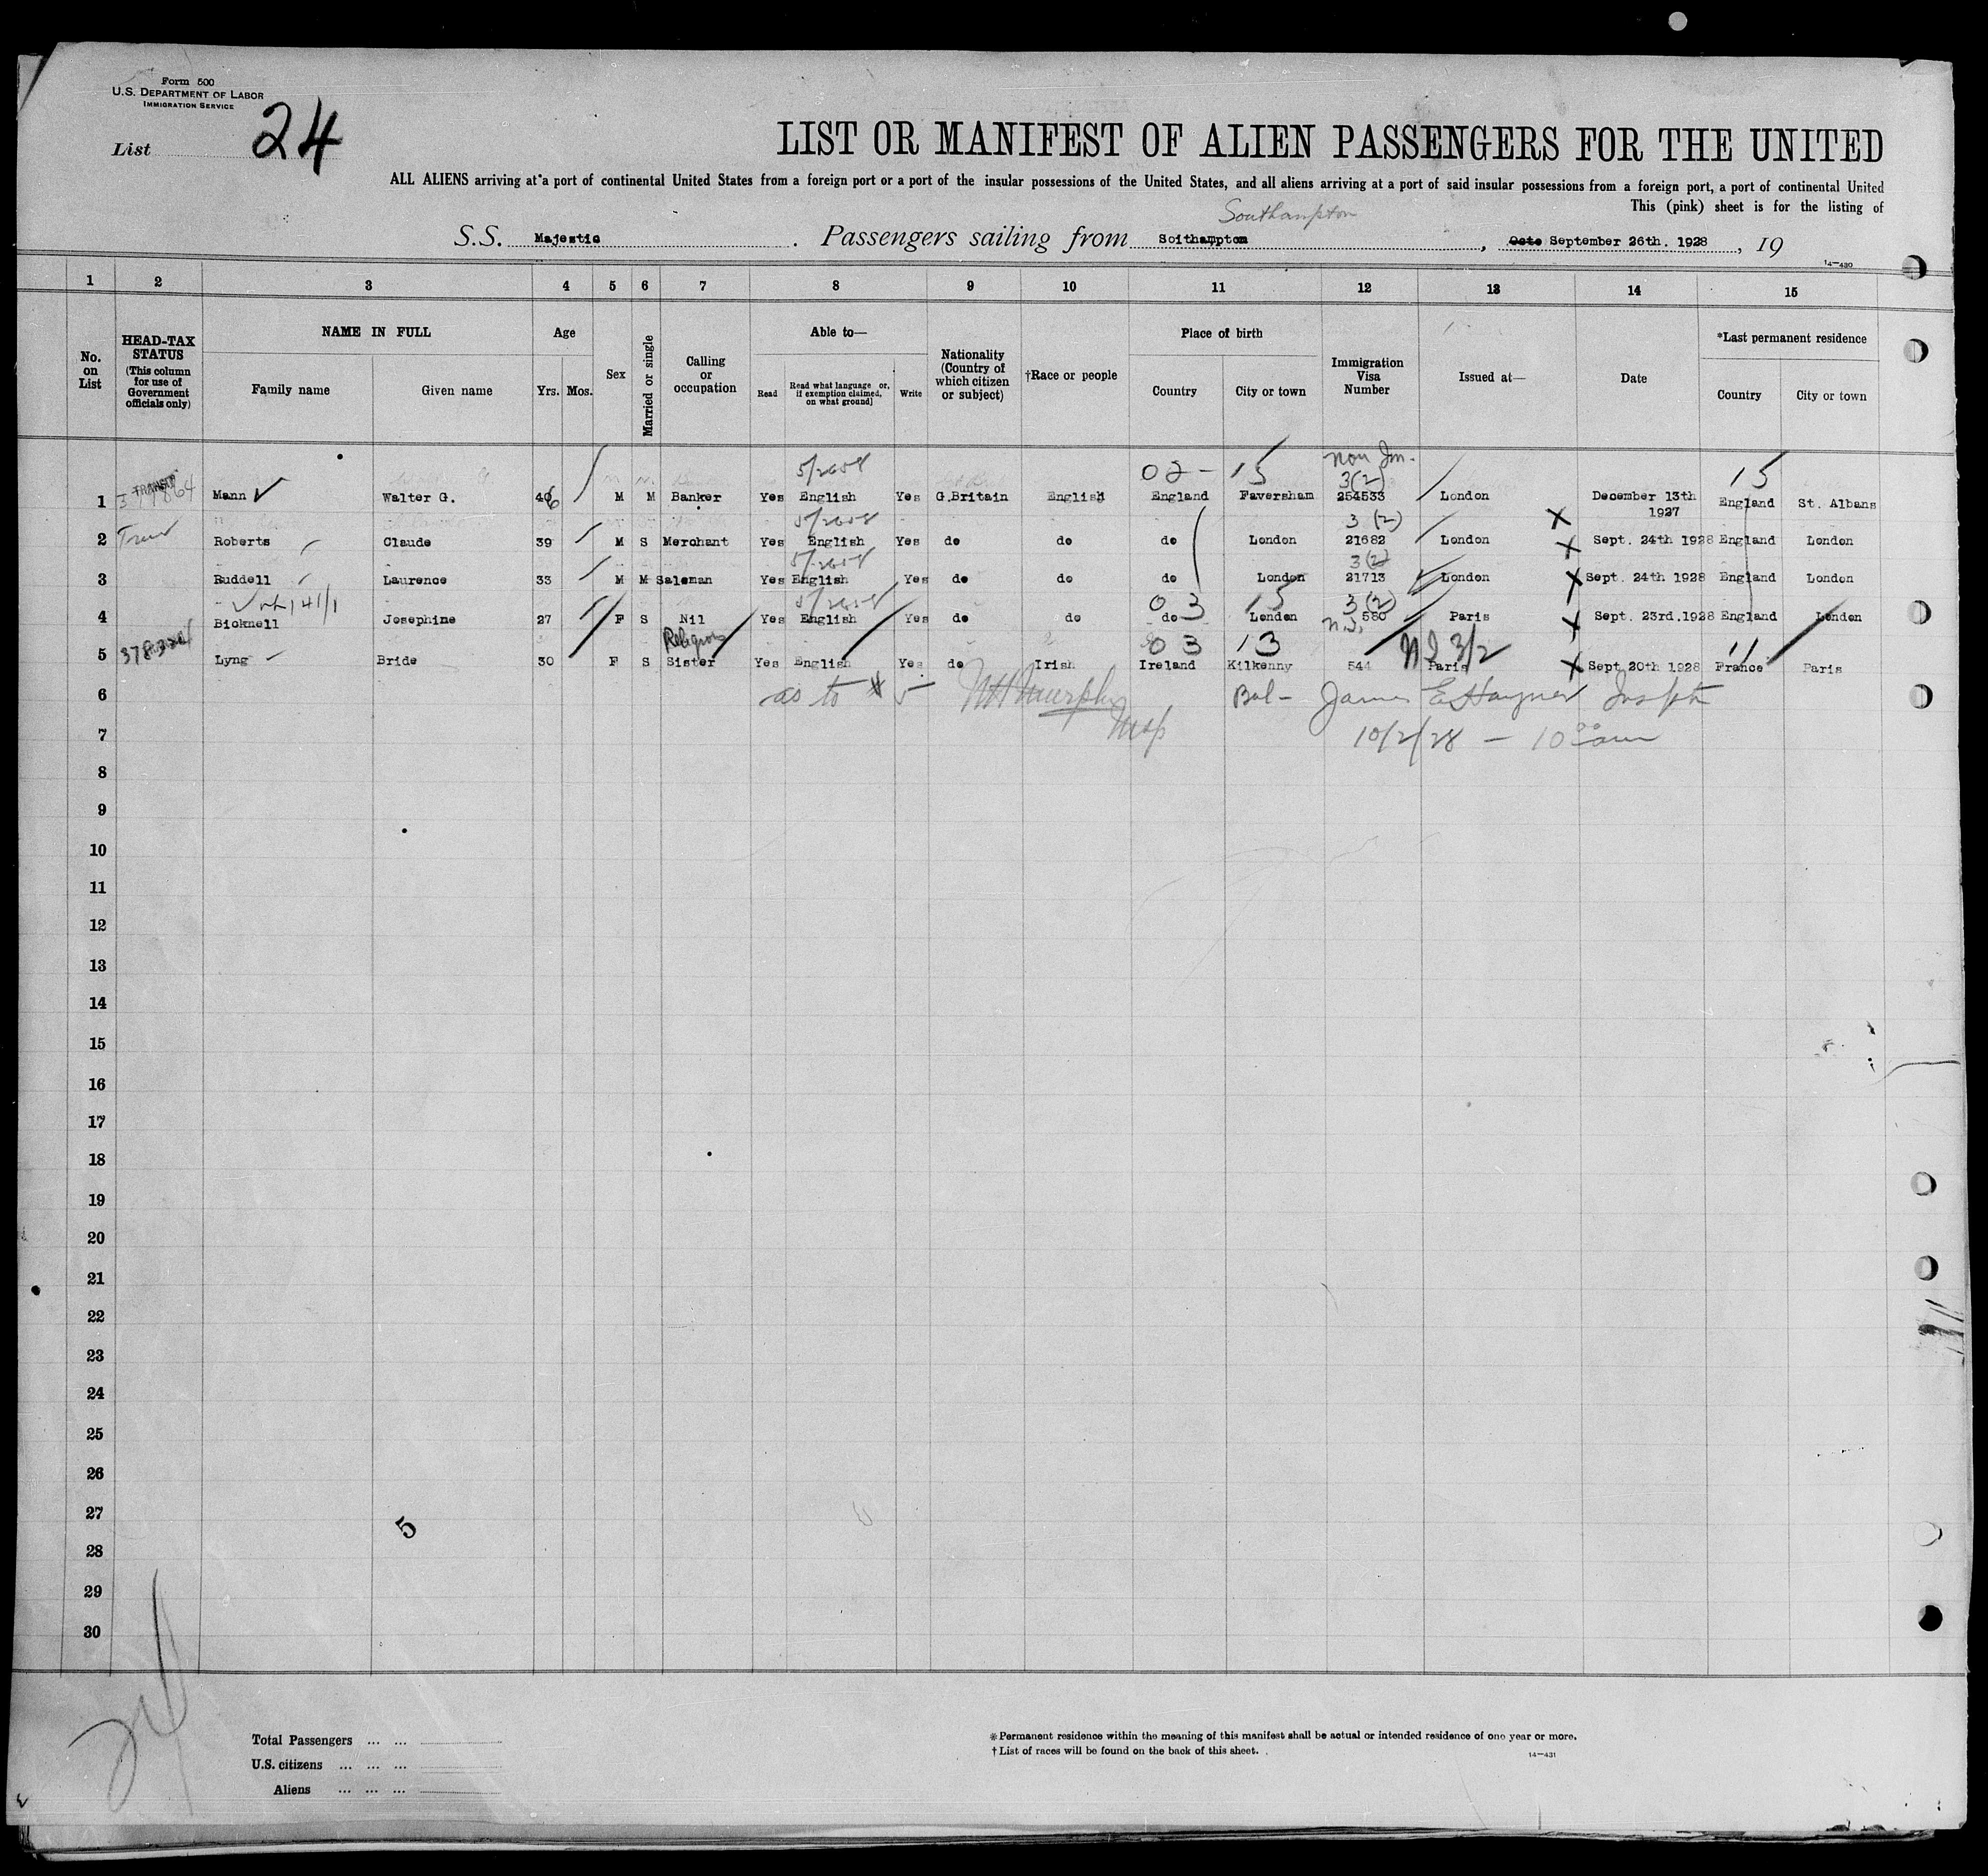 Form 500
U.S. DEPARTMENT OF LABOR
IMMIGRATION SERVICE
List 24
LIST OR MANIFEST OF ALIEN PASSENGERS FOR THE UNITED
ALL ALIENS arriving at a port of continental United States from a foreign port or a port of the insular possessions of the United States, and all aliens arriving at a port of said insular possessions from a foreign port, a port of continental United
This (pink) sheet is for the listing of
Southampton
S.S. Majestic. Passengers sailing from Soithampton, September 26th. 1928, 19
14—430
1 2 3 4 5 6 7 8 9 10 11 12 13 14 15
No. on List
HEAD-TAX STATUS
(This column for use of Government officials only)
NAME IN FULL
Family name
Given name
Age
Yrs. Mos.
Sex
Married or single
Calling or occupation
Able to—
Read
Read what language or, if exemption claimed, on what ground]
Write
Nationality (Country of which citizen or subject)
†Race or people
Place of birth
Country
City or town
Immigration Visa Number
Issued at—
Date
*Last permanent residence
Country
City or town
5/2658 02 - 15 Non Im. 3(2) 15
1 TRANSIT Mann Walter G. 46 M M Banker Yes English Yes G.Britain English England Faversham 254533 London December 13th 1927 England St. Albans
5/2658 3 (2)
2 Roberts Claude 39 M S Merchant Yes English Yes do do do London 21682 London Sept. 24th 1928 England London
5/2658 3(2)
3 Ruddell Laurence 33 M M Salesman Yes English Yes do do do London 21713 London Sept. 24th 1928 England London
5/2658 03 15 3(2)
4 Bicknell Josephine 27 F S Nil Yes English Yes do do do London 580 Paris Sept. 23rd.1928 England London
Religious 03 13 N.I. NI 3/2 11
5 Lyng Bride 30 F S Sister Yes English Yes do Irish Ireland Kilkenny 544 Paris Sept 20th 1928 France Paris
6 as to # 5 Murphy Insp Bal- James E Hayner Insptr
7 10/2/28 - 10 30 am
8
9
10
11
12
13
14
15
16
17
18
19
20
21
22
23
24
25
26
27
5
28
29
30
24
Total Passengers ... ...
U.S. citizens ... ... ...
Aliens ... ... ...
*Permanent residence within the meaning of this manifest shall be actual or intended residence of one year or more.
†List of races will be found on the back of this sheet.
14—431